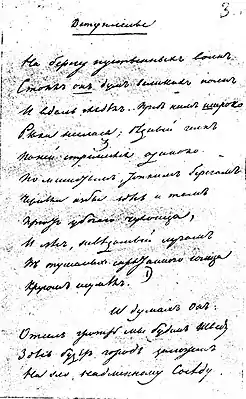 3.
Вступленье
На берегу пустынныхъ волнъ
Стоялъ онъ думъ великихъ полнъ
И вдаль глядѣлъ. Предъ нимъ широко
Рѣка неслася; бѣдный челнъ
По ней стремился одиноко
По мшистымъ, топкимъ берегамъ
Чернѣли избы здѣсь и тамъ
Приютъ убогаго чухонца,
И лѣсъ, невѣдомый лучамъ
Въ туманѣ спрятаннаго солнца
Кругомъ шумѣлъ. 1)
И думалъ онъ:
Отсель грозить мы будемъ Шведу
Здѣсь будетъ городъ заложенъ
На зло надменному Сосѣду.